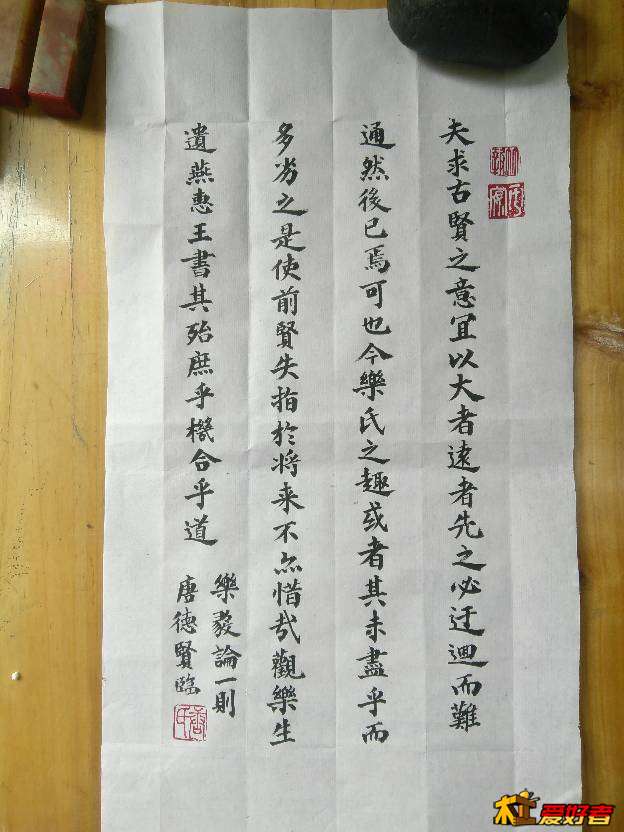 夫求古賢之意宜以大者遠者先之必迂迴而難
通然後已焉可也今樂氏之趣或者其未盡乎而
多劣之是使前賢失指於將来不亦惜哉觀樂生
遺燕惠王書其殆庶乎機合乎道
樂毅論一則
唐德賢臨
杠爱好者